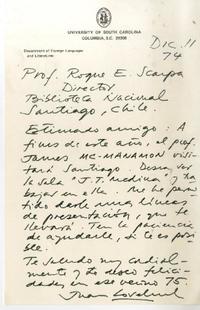 UNIVERSITY OF SOUTH CAROLINA
COLUMBIA, S.C. 29208
Department of Foreign Languages
and Literatures
Dic. 11
74
Prof. Roque E. Scarpa
Director
Biblioteca Nacional
Santiago, Chile.
Estimado amigo: A
fines de este año, el prof.
James Mc-MANAMON visi-
tará Santiago. Desea ver
la sala "J.T. Medina" y tra
bajar en ella. Me he permi
tido darle unas líneas
de presentación, que te
llevará. Ten la paciencia
de ayudarle, si te es po-
sible.
Te saludo muy cordial-
mente y te deseo felici-
dades en ese verano 75.
Juan Loveluck